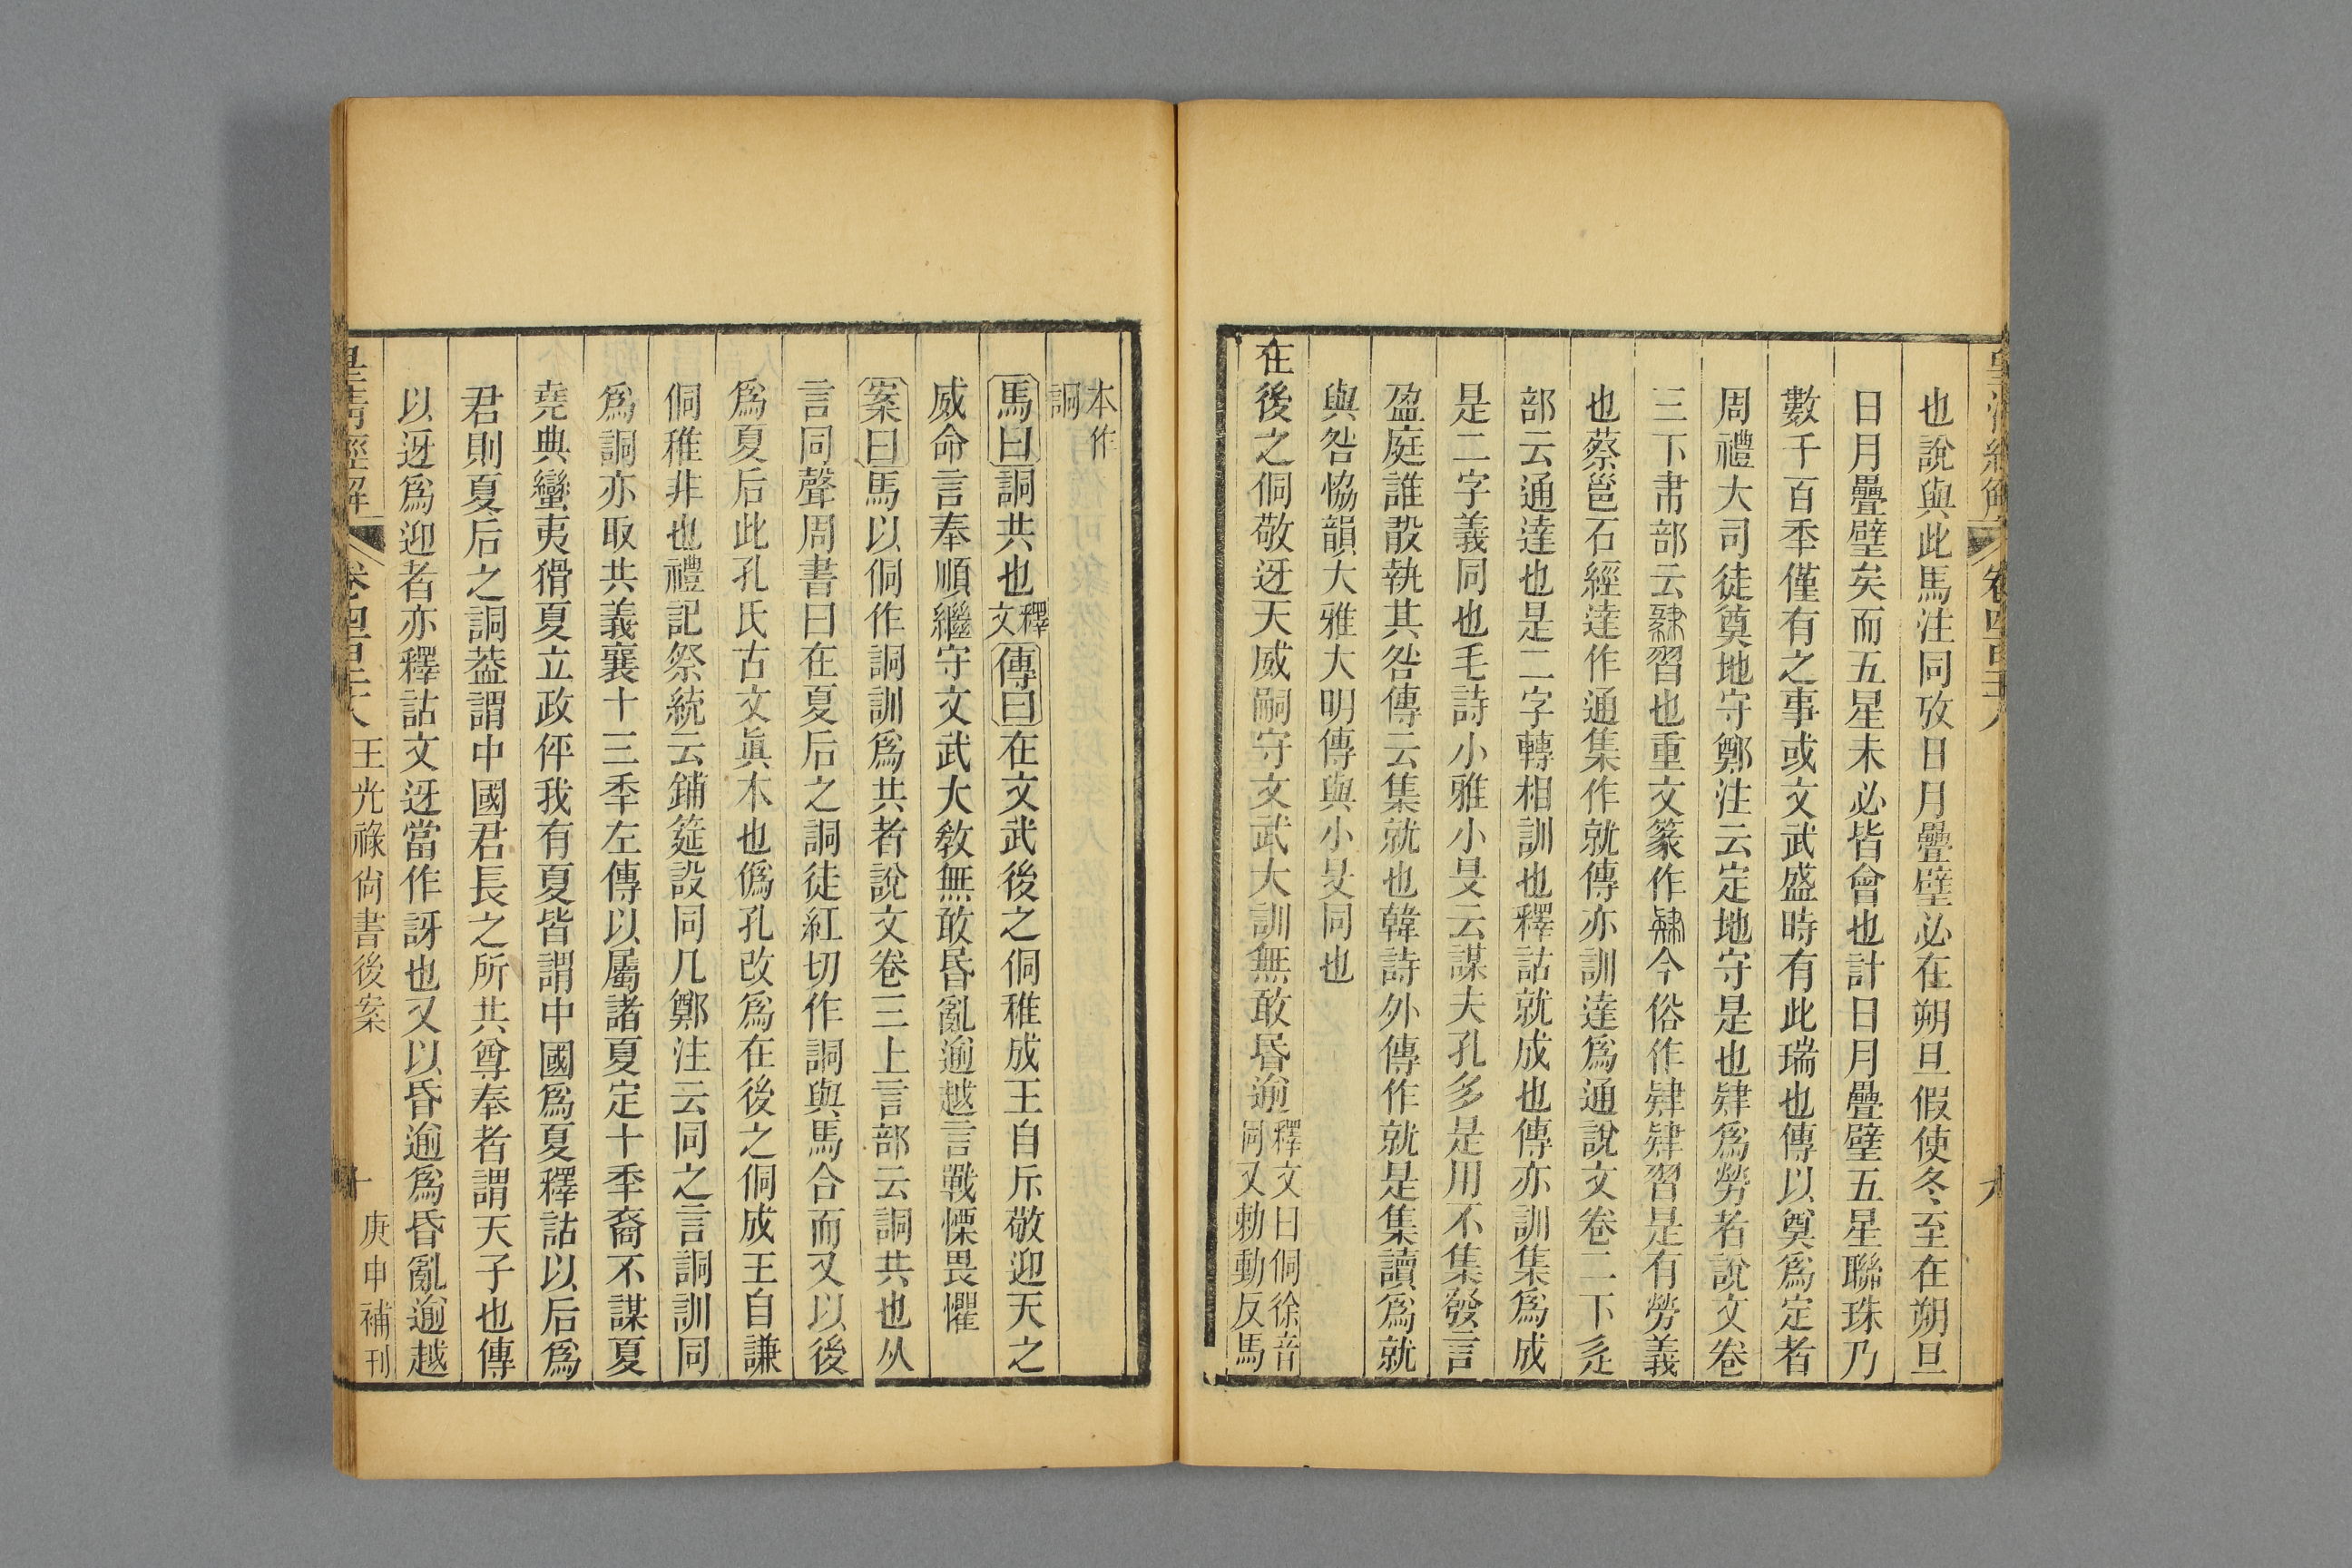 皇清經解
卷四百二十八
九
也說與此馬注同攷日月疊璧必在朔旦假使冬至在朔旦
日月疊璧矣而五星未必皆會也計日月疊璧五星聯珠乃
數千百秊僅有之事或文武盛時有此瑞也傳以奠爲定者
周禮大司徒奠地守鄭注云定地守是也肄爲勞者說文卷
三下𦘒部云𨽸習也重文篆作肄今俗作肄肄習是有勞義
也蔡邕石經達作通集作就傳亦訓達爲通說文卷二下辵
部云通達也是二字轉相訓也釋詁就成也傳亦訓集爲成
是二字義同也毛詩小雅小旻云謀夫孔多是用不集發言
盈庭誰敢執其咎傳云集就也韓詩外傳作就是集讀爲就
與咎協韻大雅大明傳與小旻同也
在後之侗敬迓天威嗣守文武大訓無敢昏逾釋文曰侗徐音
同又勅動反馬
本作
詷
馬曰詷共也釋文傳曰在文武後之侗稚成王自斥敬迎天之
威命言奉順繼守文武大敎無敢昏亂逾越言戰慄畏懼
案曰馬以侗作詷訓爲共者說文卷三上言部云詷共也从
言同聲周書曰在夏后之詷徒紅切作詷與馬合而又以後
爲夏后此孔氏古文眞本也僞孔改爲在後之侗成王自謙
侗稚非也禮記祭統云鋪筵設同几鄭注云同之言詷訓同
爲詷亦取共義襄十三秊左傳以屬諸夏定十秊裔不謀夏
堯典蠻夷猾夏立政伻我有夏皆謂中國爲夏釋詁以后爲
君則夏后之詷葢謂中國君長之所共尊奉者謂天子也傳
以迓爲迎者亦釋詁文迓當作訝也又以昏逾爲昏亂逾越
皇淸經解
卷四百二十八
王光祿尙書後案
十
庚申補刊